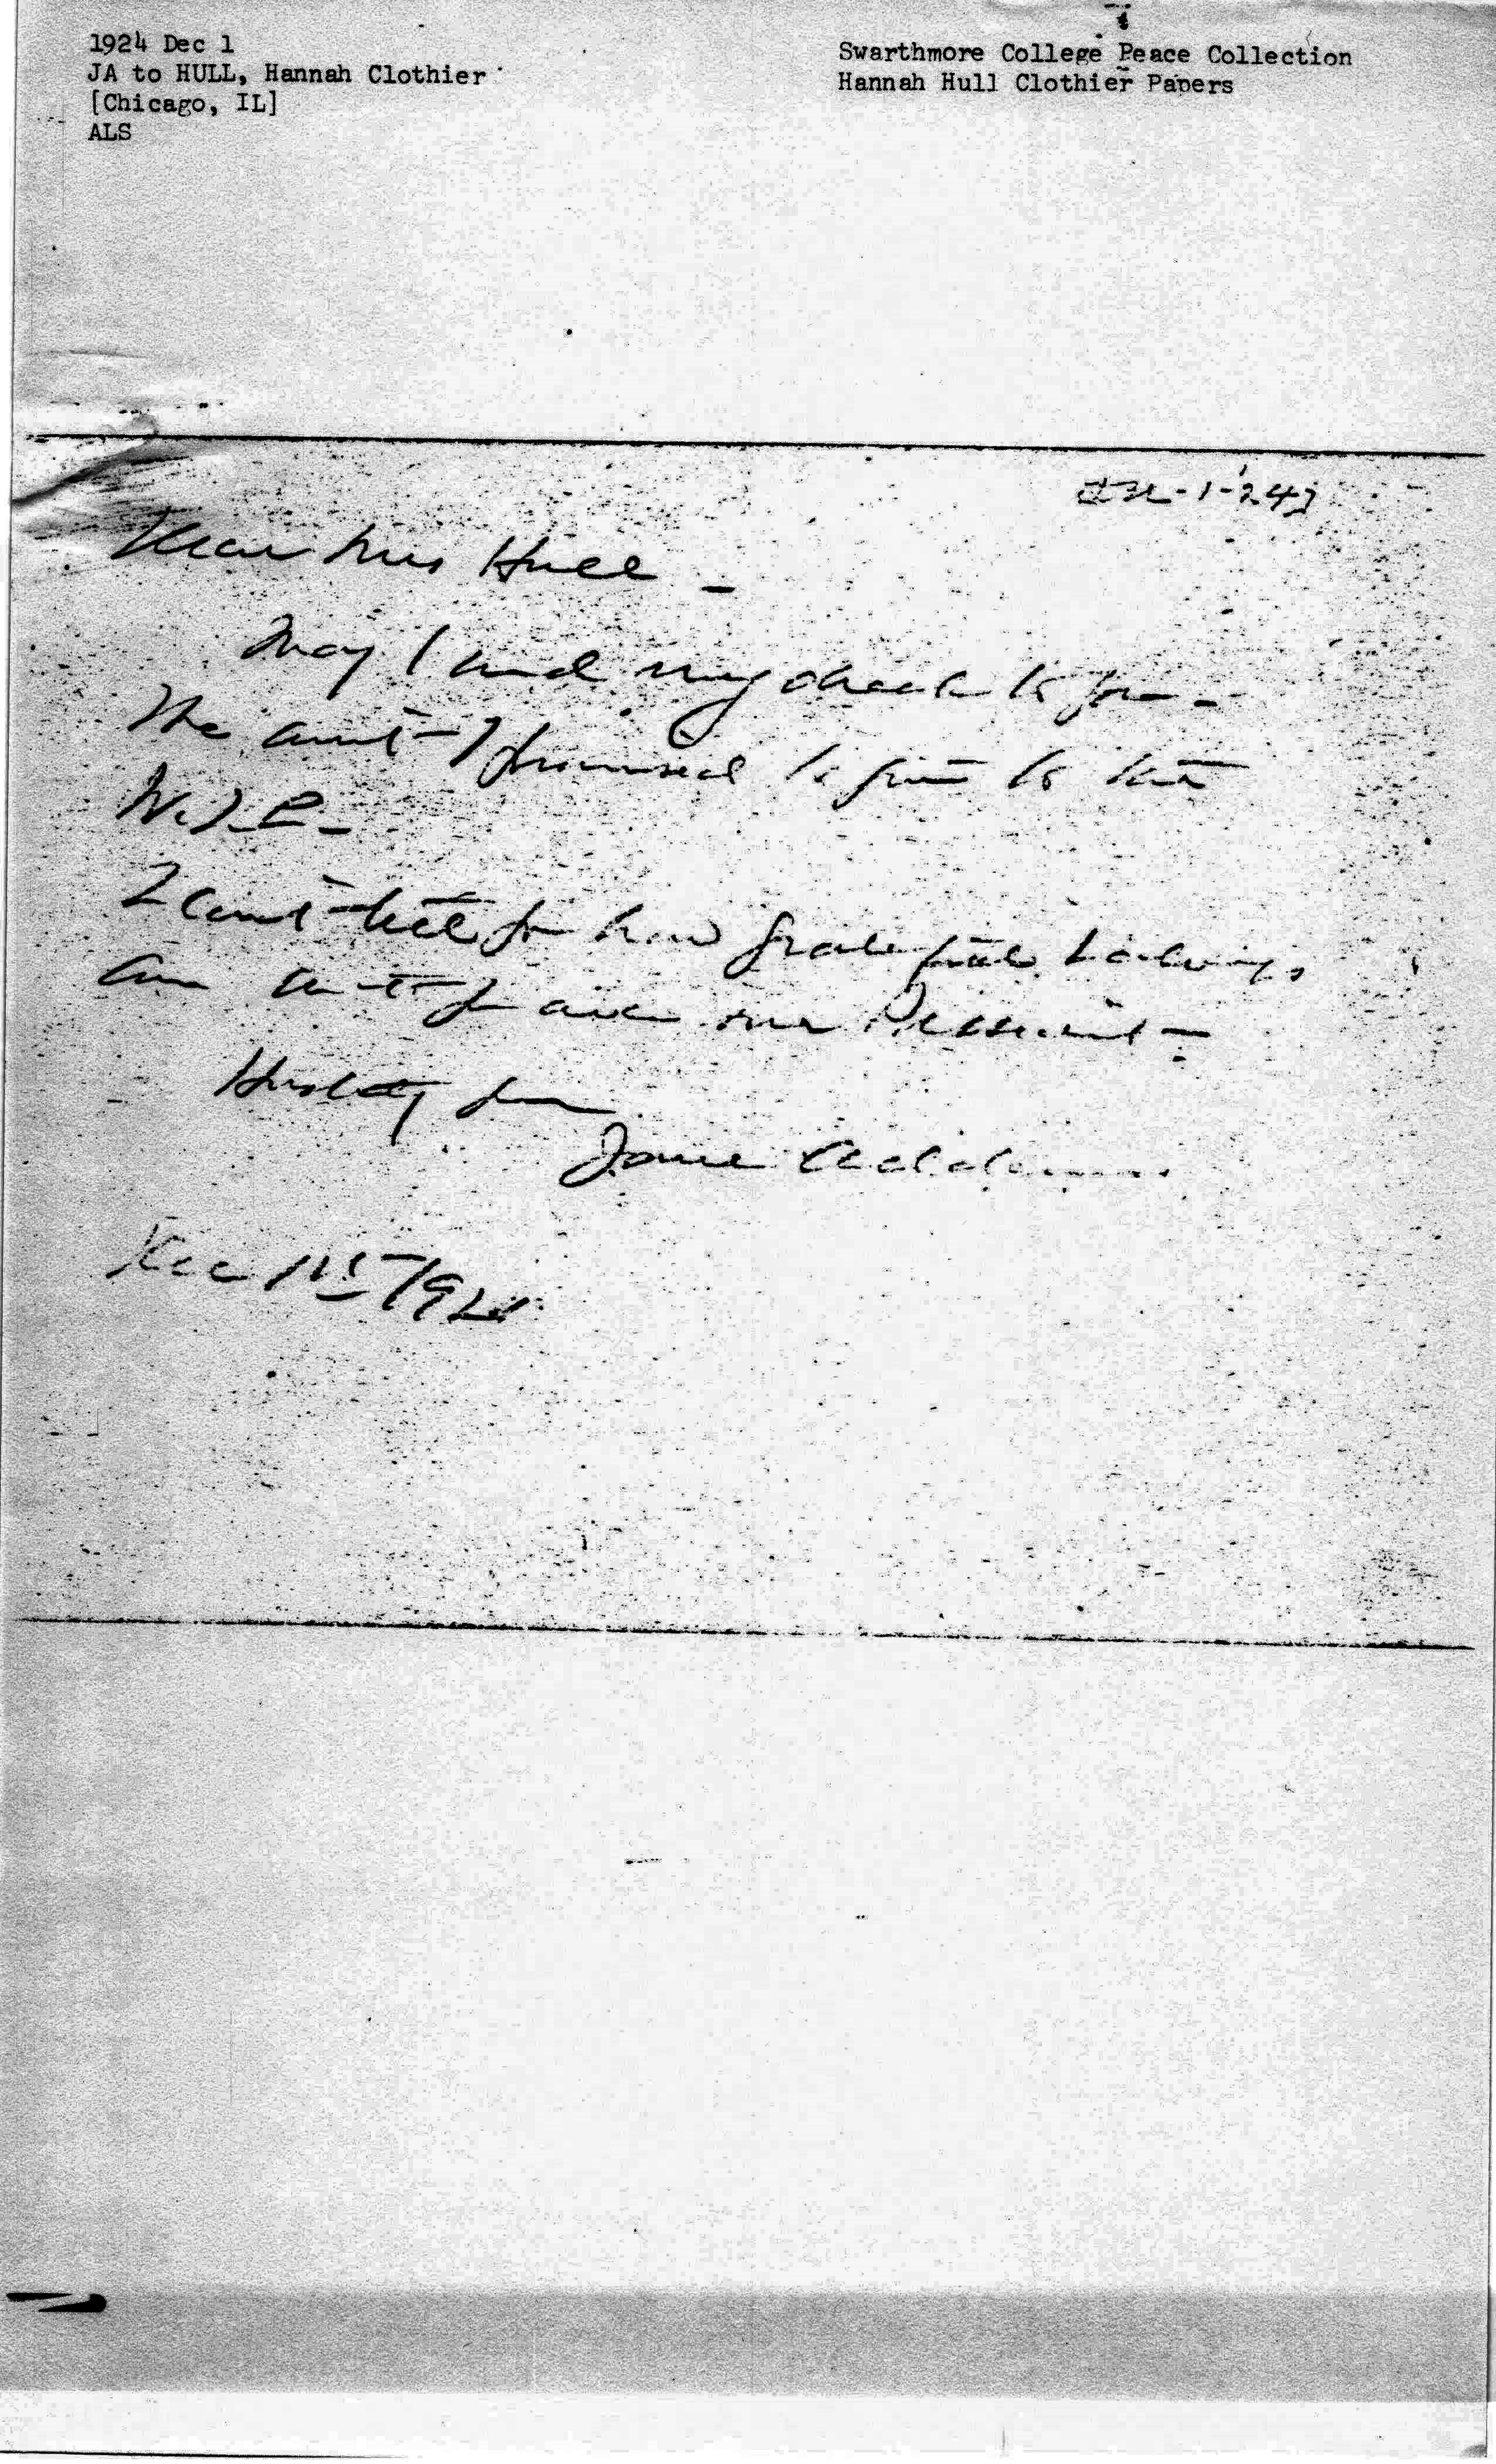 1924 Dec 1
JA to HULL, Hannah Clothier
[Chicago, IL]
ALS
Swarthmore College Peace Collection
Hannah Hull Clothier Papers
-1-24]
Dear Mrs Hull -
May I send my check to you -
The amt I promised to give to the
W.I.L-
I can't tell you how grateful I always
am that you are our President -
Heartily yours
Jane Addams.
Dec 1st 1924